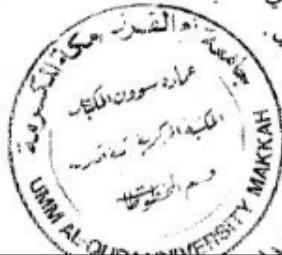 جامعة أم القرى مكة المكرمة
عمادة شؤون المكتبات
المكتبة المركزية
قسم المخطوطات
UMM AL-QURA UNIVERSITY MAKKAH